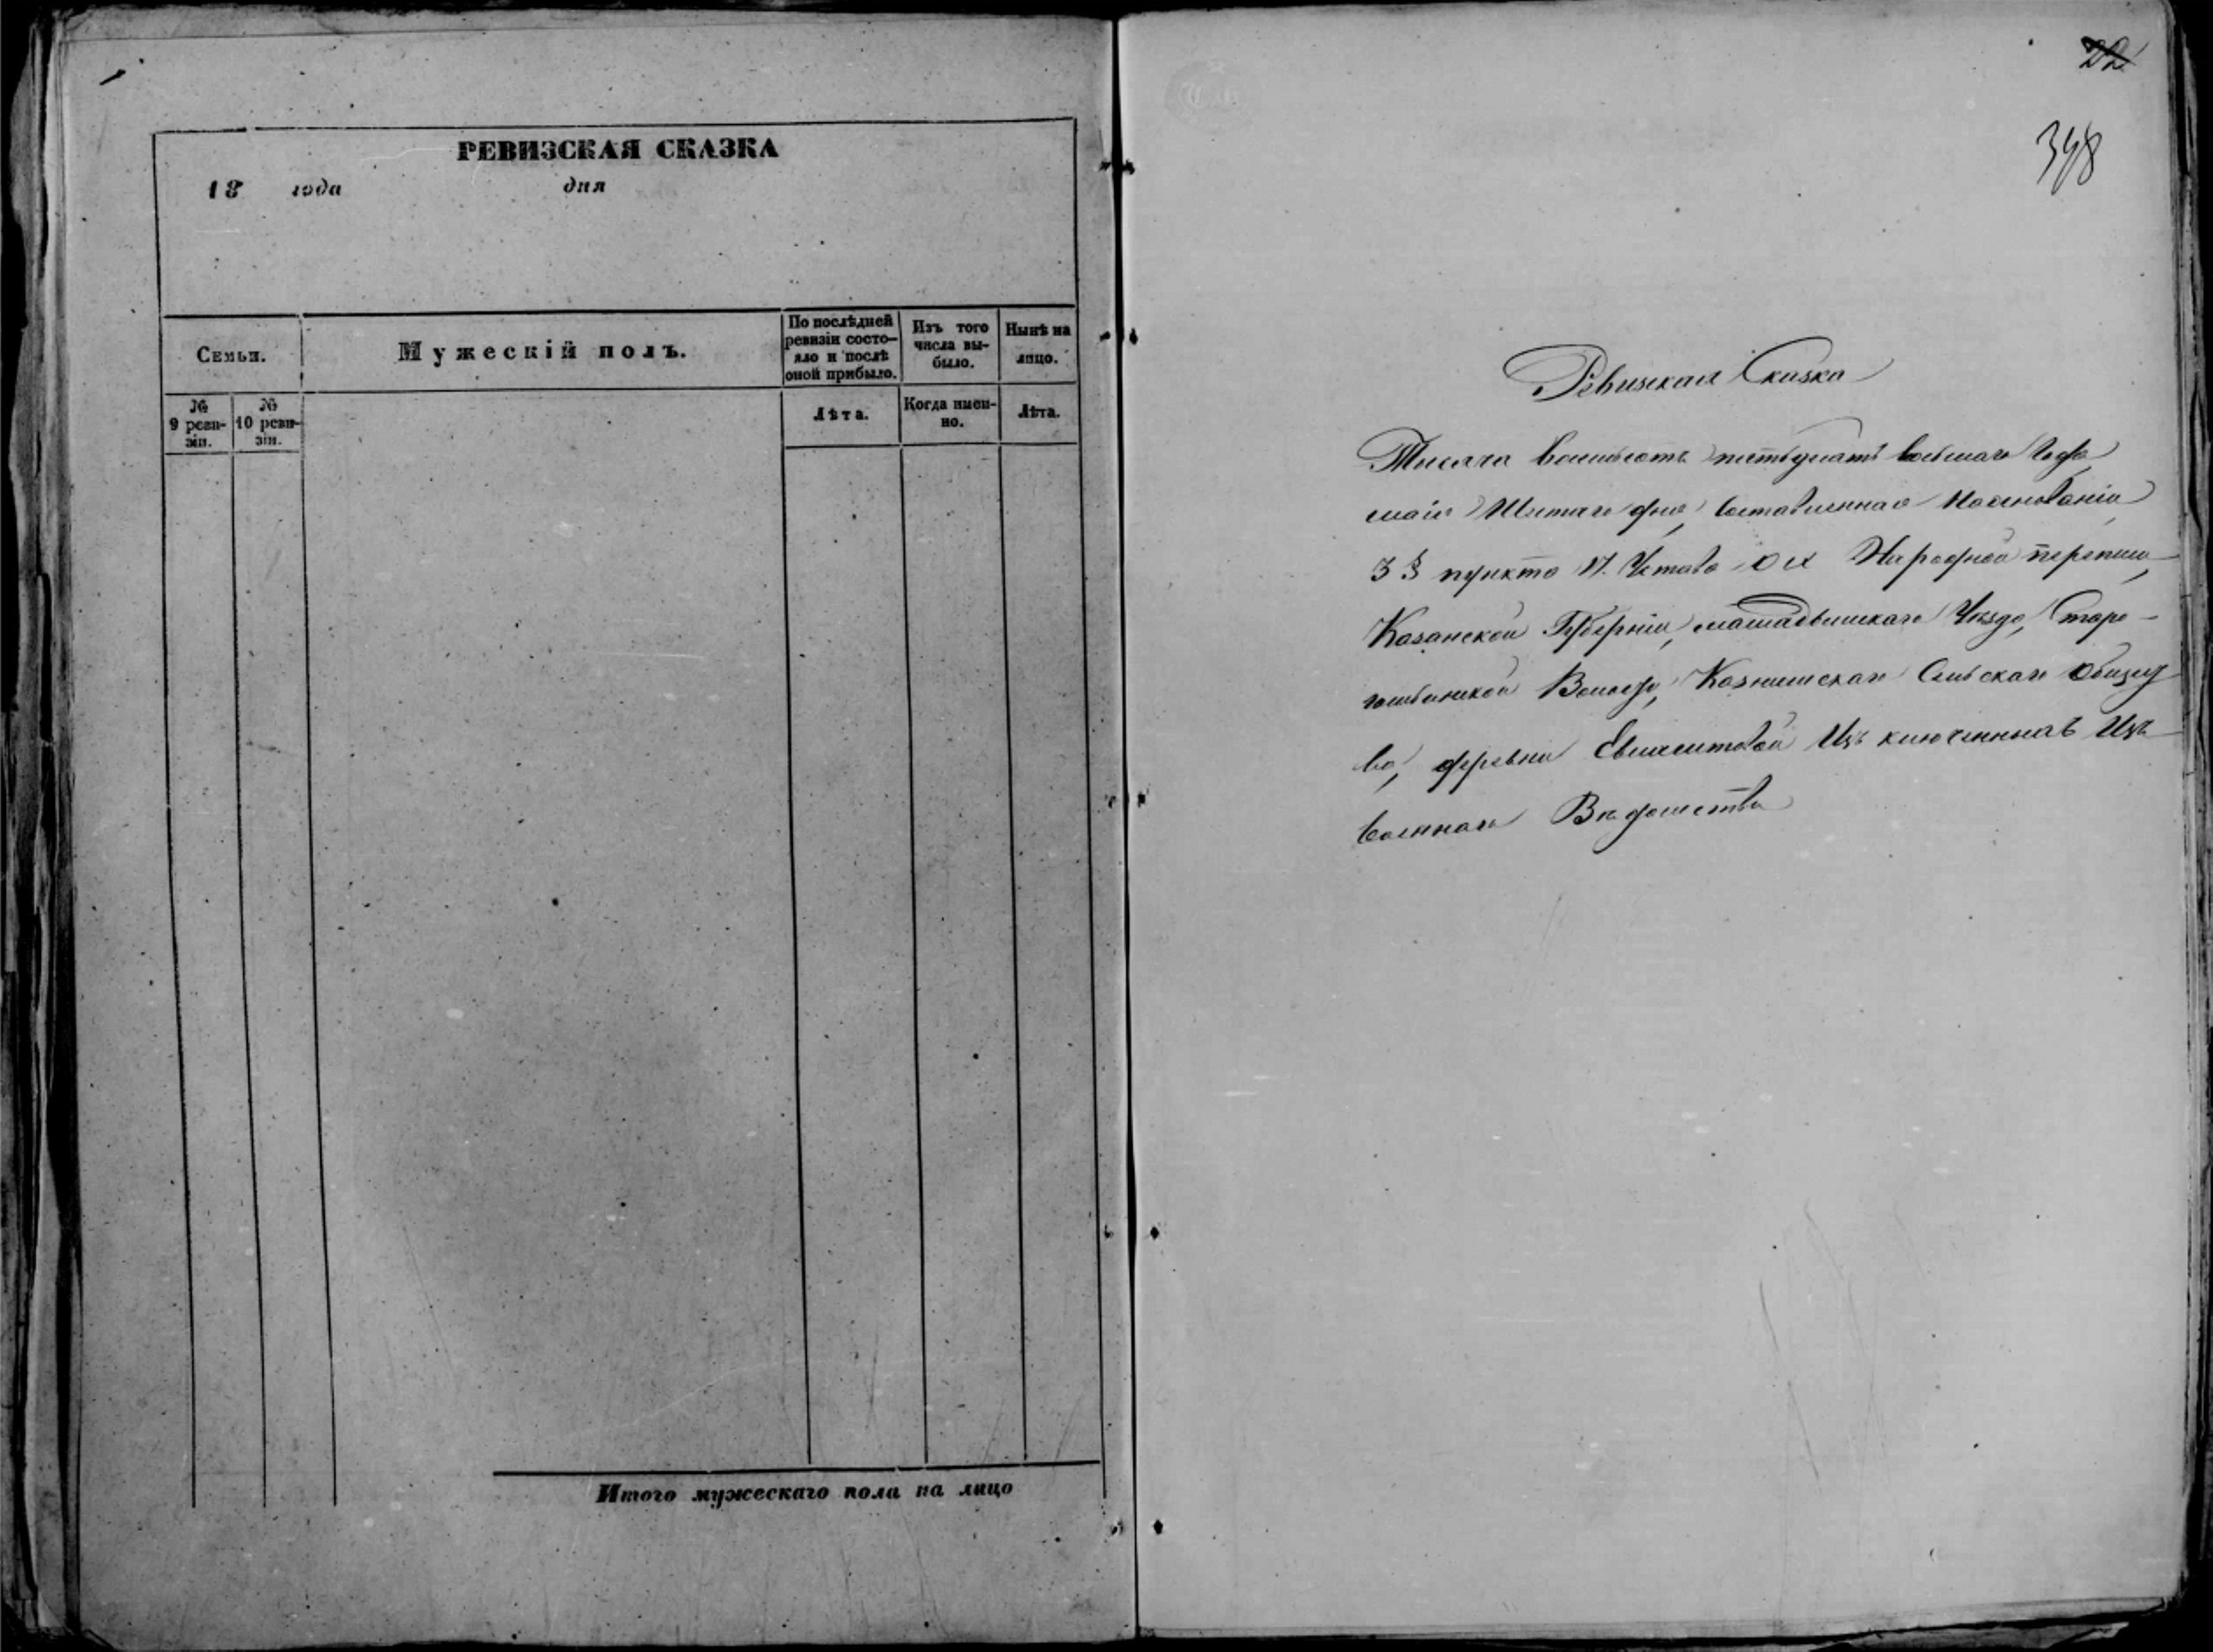 РЕВИЗСКАЯ СКАЗКА
18 года дня
Семьи.
Мужескій полъ.
По послѣдней ревизіи состо-яло и послѣ оной прибыло.
Изъ того числа вы-было.
Нынѣ на лицо.
№ 9 реви-зіи.
№ 10 реви-зіи.
Лѣта.
Когда имен-но.
Лѣта.
Итого мужескаго пола на лицо
22
398
Ревизская Сказка
Тысяча восемьсотъ пятьдесятъ восьмаго года
маія дня, составленная
3 § пункта 17. Устава о IX Народной переписи,
Казанской Губерніи, мамадышскаго Уѣзда, Старо-
Сельскаго общест
ва, деревни Изъ ключенныхъ Изъ
военнаго Вѣдомства